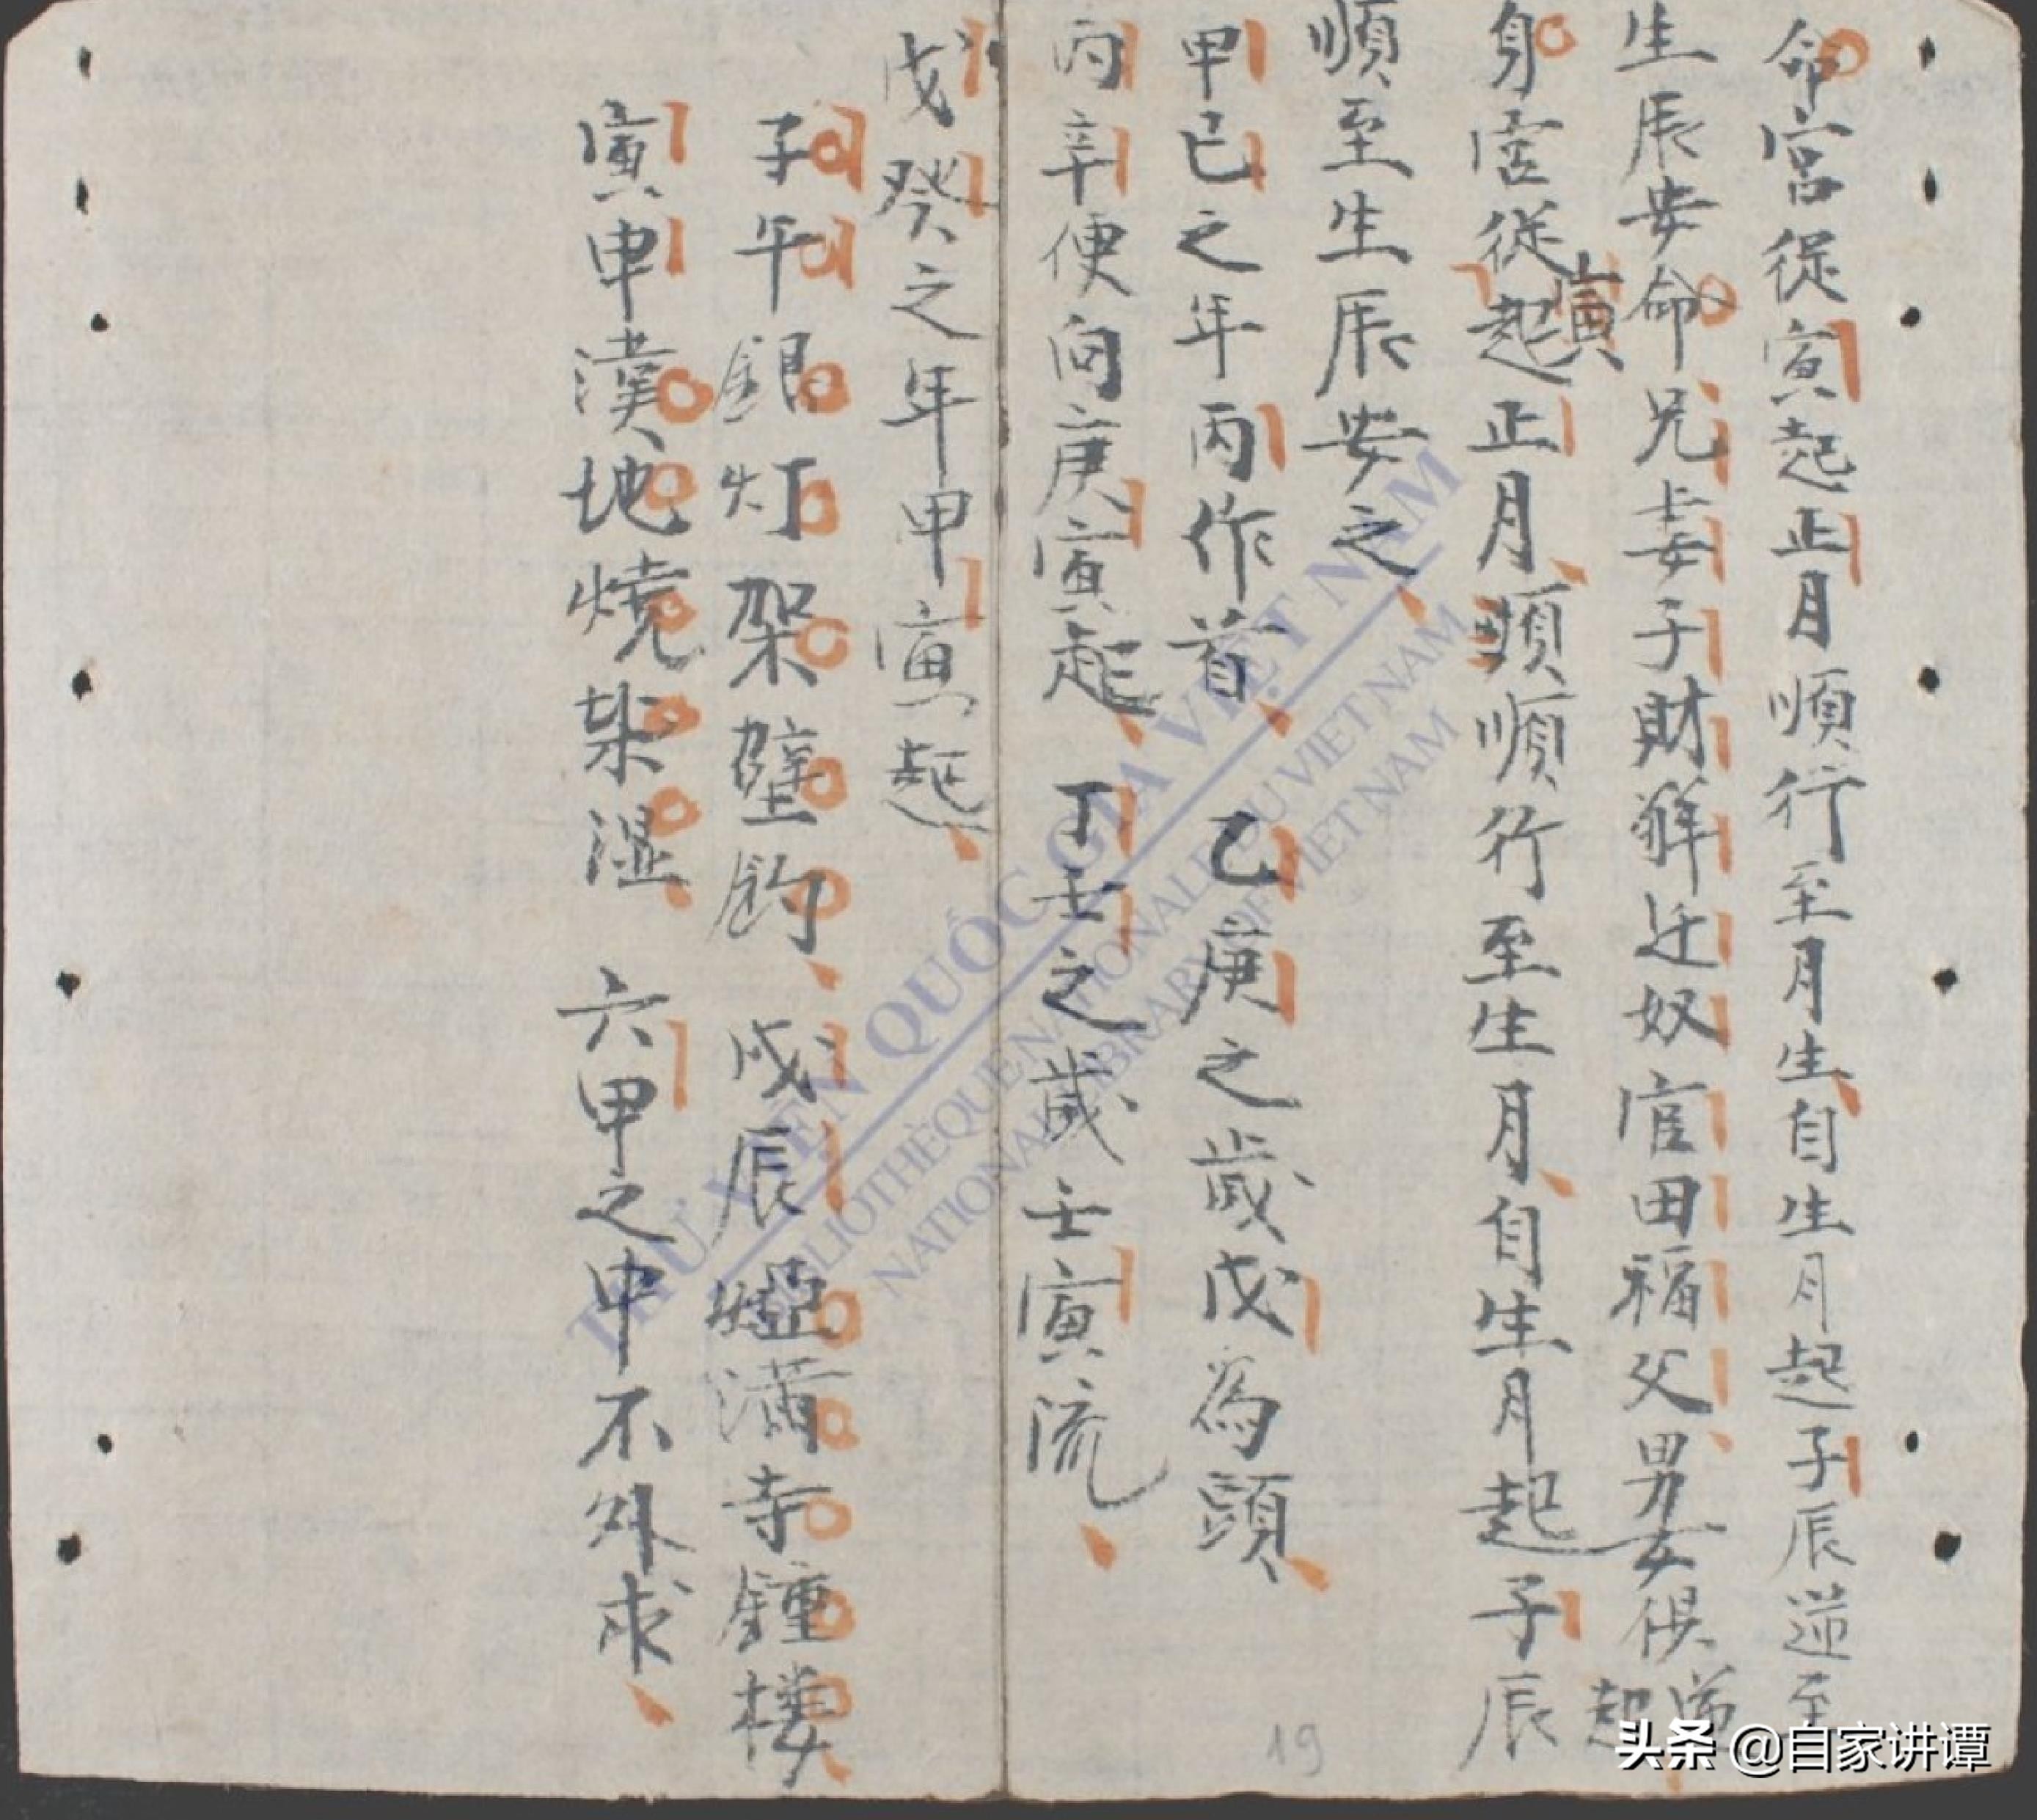 命宮從寅起正月順行至月生自生月起子辰逆至
生辰安命兄妻子財解迁奴官田福父男女俱逆
起
身宮從寅起正月順順行至生月自生月起子辰
順至生辰安之
甲己之年丙作首 乙庚之歲戊為頭
丙辛便向庚寅起 丁壬之歲壬寅流
戊癸之年甲寅起
子午銀灯架壁鈎 戊辰烟満寺鍾楼
寅申漢地燒柴湿 六甲之中不外求
19
THƯ VIỆN QUỐC GIA VIỆT NAM
BIBLIOTHÈQUE NATIONALE DU VIET NAM
NATIONAL LIBRARY OF VIET NAM
头条 @自家讲谭